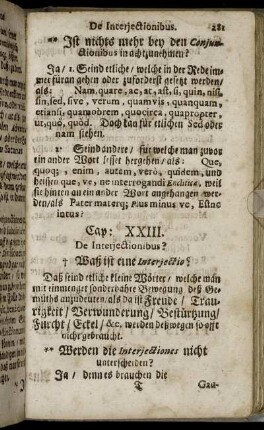 De Interjectionibus. 281
** Ist nichts mehr bey den Conjun-
ctionibus in acht zunehmen?
Ja / 1. Seind etliche / welche in der Rede im-
mer für an gehen oder zuforderst gesetzt werden/
als: Nam, quare, ac, at, ast, si, quin, nisi,
sin, sed, sive, verum, quamvis, quanquam,
etiamsi, quamobrem, quocirca, quapropter,
ut, quo, quòd. Doch kan für etlichen Sed oder
nam stehen.
2. Seind andere / für welche man zuvor
ein ander Wort setzet hergehen / als: Que,
quoq;, enim, autem, verò, quidem, und
deßgleichen que, ve, ne interrogandi Encliticæ, weil
sie hinten an ein ander Wort angehangen wer-
den / als Pater materq; Plus minus ve, Estne
intus?
Cap: XXIII.
De Interjectionibus?
† Waß ist eine Interjectio?
Daß seind etliche kleine Wörter / welche man
mit einmenget sonderbahre Bewegung deß Ge-
müths anzudeuten / als da ist Freude / Trau-
rigkeit / Verwunderung / Bestürtzung /
Furcht / Eckel / &c. werden deßwegen so offt
nicht gebraucht.
** Werden die Interjectiones nicht
unterscheiden?
Ja / denn es brauchen die
T Gau-